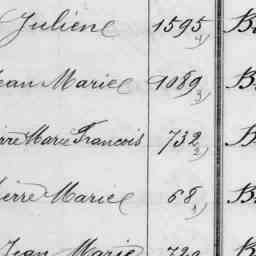 Julien 1595 4) B
Jean Marie 1089 3) B
Pierre Marie François 732 2) B
Pierre Marie 68 1) B
Jean Marie 720